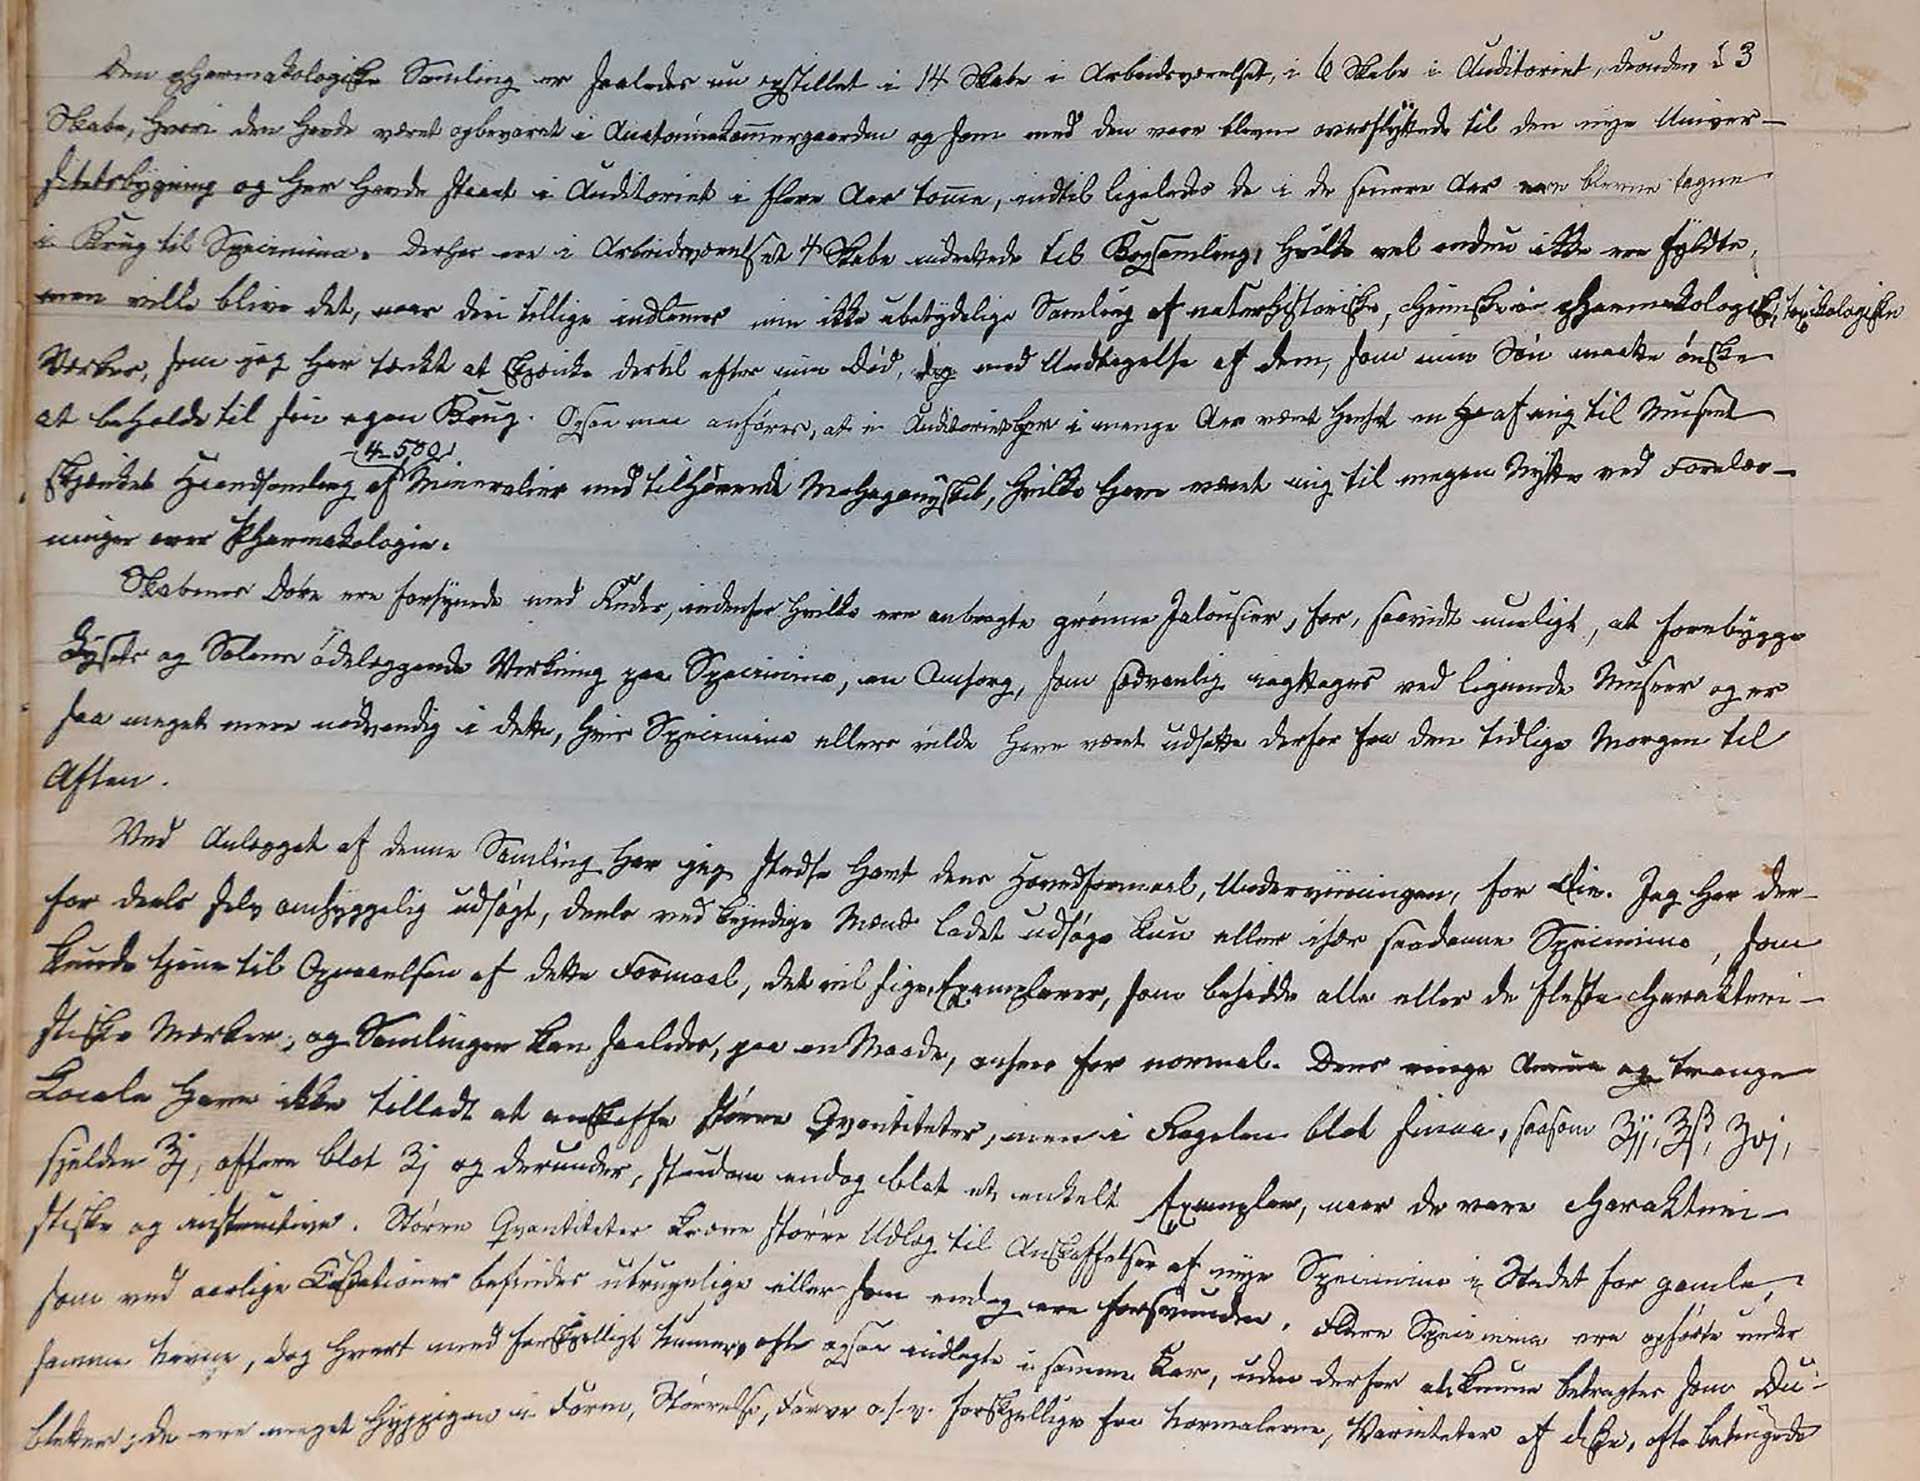 Den pharmakologiske Samling er saaledes nu opstillet i 14 Skabe i Arbeidsværelset, i 6 Skabe i Auditoriet, desuden i 3
Skabe, hvori den havde været opbevaret i Anatomiekammergaarden og som med den vare blevne overflyttede til den nye Univer-
sitetsbygning og her havde staaet i Auditoriet i flere Aar tomme, indtil ligeledes de i de senere Aar vare blevne tagne
i Brug til Specimina. Derhos ere i Arbeidsværelset 4 Skabe indrettede til Bogsamling, hvilke vel endnu ikke ere fyldte,
men ville blive det, naar deri tillige indlemmes min ikke ubetydelige Samling af naturhistoriske, chemiske og pharmakologiske, toxikologiske
Værker, som jeg har tænkt at skjænke dertil efter min Død, dog med Undtagelse af dem, som min Søn maatte ønske
at beholde til sin egen Brug. Ogsaa maa anføres, at i Auditoriet har i mange Aar været hensat en af mig til Museet
skjænket Haandsamling af Mineralier med tilhørende Mahagonyskab, hvilke have været mig til megen Nytte ved Forelæs-
4-500
ninger over Pharmakologie.
Skabenes Døre ere forsynede med Ruder, indenfor hvilke ere anbragte grønne Jalousier, for, saavidt mueligt, at forebygge
Lysets og Solens ødelæggende Virkning paa Specimina, en Omsorg, som sædvanlig iagttages ved lignende Museer og er
saa meget mere nødvendig i dette, hvis Specimina ellers vilde have været udsatte derfor fra den tidlige Morgen til
Aften.
Ved Anlægget af denne Samling har jeg stedse havt dens Hovedformaal, Underviisningen, for Øie. Jeg har der-
for deels selv omhyggelig udsøgt, deels ved kyndige Mænd ladet udsøge kun eller især saadanne Specimina, som
kunde tjene til Opnaaelsen af dette Formaal, det vil sige, Exemplarer, som besidde alle eller de fleste charakteri-
stiske Mærker; og Samlingen kan saaledes, paa en Maade, ansees for normal. Dens ringe og trange
Locale have ikke tilladt at anskaffe større Qvantiteter, men i Regelen blot smaa, saasom ℥ij, ℥ß, ʒvj,
sjelden ℥j, oftere blot ʒj og derunder, stundom endog blot et enkelt Exemplar, naar de vare charakteri-
stiske og instructive. Større Qvantiteter kræve større Udlæg til Anskaffelser af nye Specimina i Stedet for gamle,
som ved aarlige Cassationer befindes utrugelige eller som endog ere forsvundne. Flere Specimina ere opførte under
samme Navne, dog hvert med forskjelligt Numer, ofte ogsaa indlagte i samme Kar, uden derfor at kunne betragtes som Du-
bletter; de ere meget hyppigen i Form, Størrelse, Farve o.s.v. forskjellige fra Normalerne, Varieteter af disse, ofte betingede